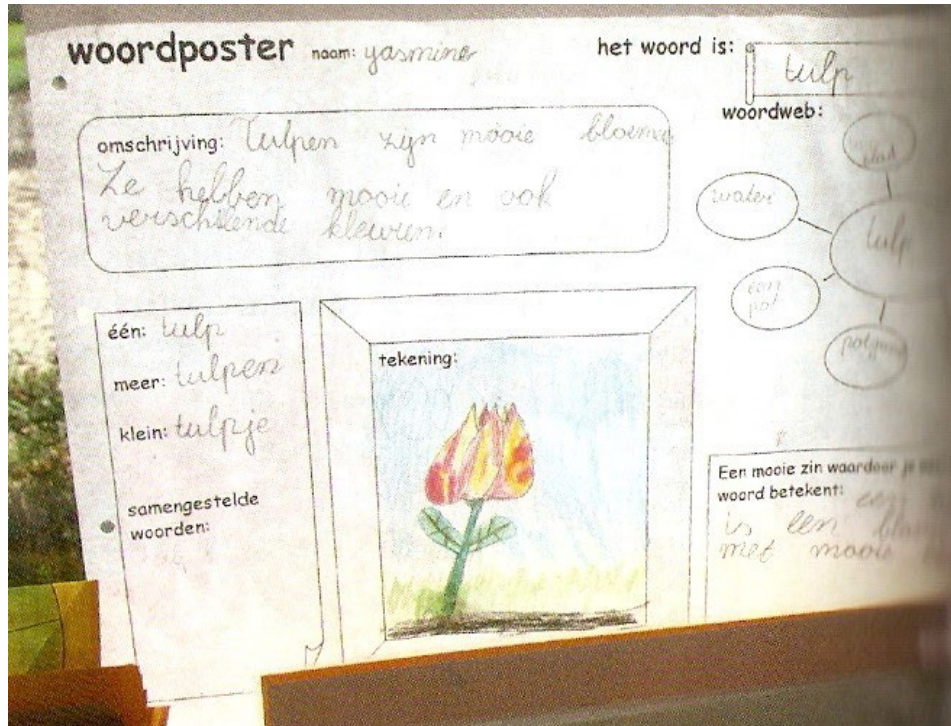 woordposter naam: yasmine het woord is: tulp
omschrijving: Tulpen zijn mooie
Ze hebben mooie en ook
verschillende kleuren.
woordweb:
blad
water
tulp
een
pot
één: tulp
meer: tulpen
klein: tulpje
samengestelde
woorden:
tekening:
Een mooie zin waardoor je
woord betekent:
is een
met mooie